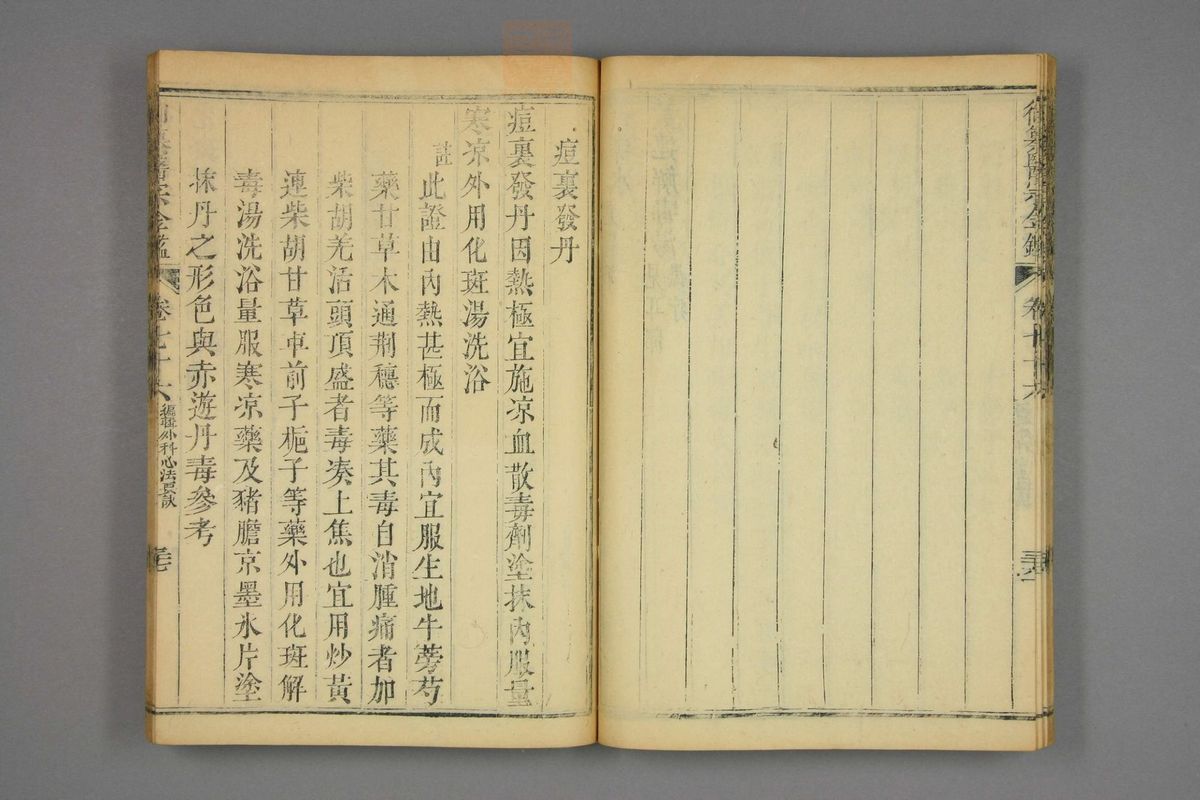 御纂醫宗金鑑
卷七十六
痘裏發丹
痘裏發丹因熱極宜施凉血散毒劑塗抹內服量
寒凉外用化斑湯洗浴
註
此證由內熱甚極而成內宜服生地牛蒡芍
藥甘草木通荆穗等藥其毒自消腫痛者加
柴胡羌活頭頂盛者毒凑上焦也宜用炒黃
連柴胡甘草車前子梔子等藥外用化斑解
毒湯洗浴量服寒凉藥及猪膽京墨氷片塗
抹丹之形色與赤遊丹毒參考
御纂醫宗金鑑
卷七十六
編輯外科心法要訣